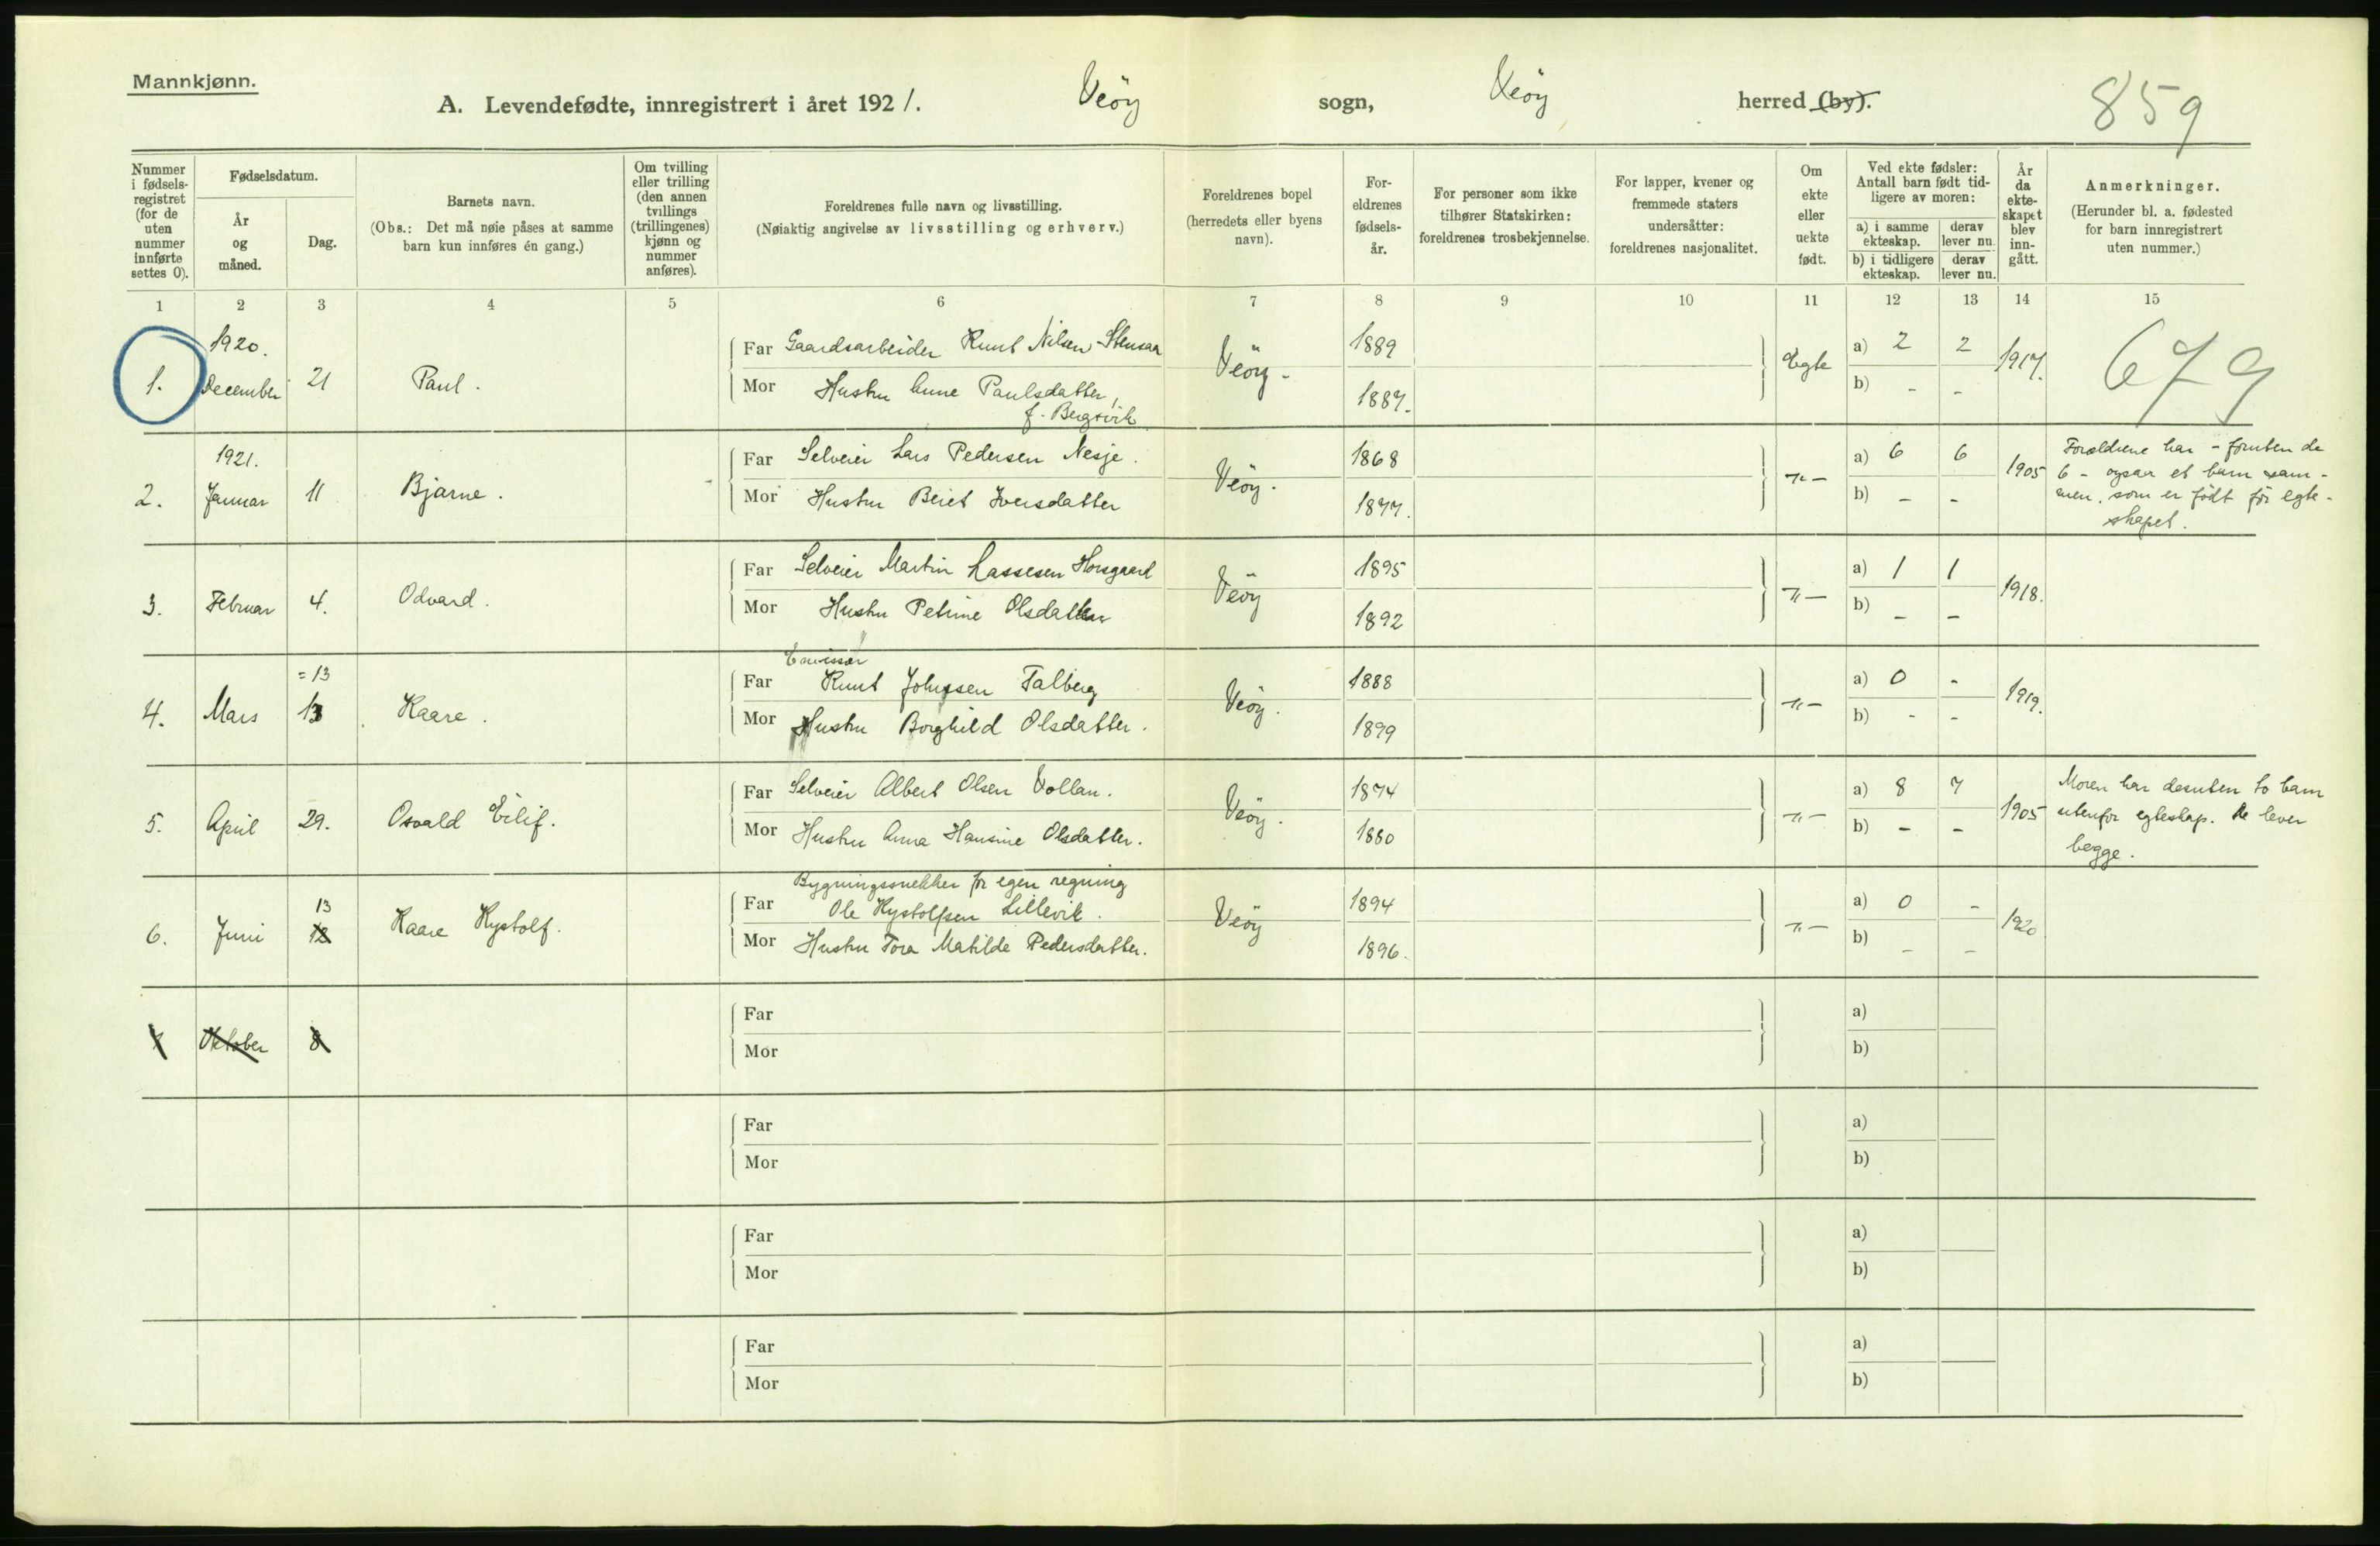 Mannkjønn.
A. Levendefødte, innregistrert i året 1921. Veöy sogn, Veöy herred (by). 859
Nummer i fødselsregistret (for de uten nummer innførte settes 0).
Fødselsdatum.
År og måned.
Dag.
Barnets navn.
(Obs.: Det må nøie påses at samme barn kun innføres én gang.)
Om tvilling eller trilling (den annen tvillings (trillingenes) kjønn og nummer anføres).
Foreldrenes fulle navn og livsstilling.
(Nøiaktig angivelse av livsstilling og erhverv.)
Foreldrenes bopel (herredets eller byens navn).
Foreldrenes fødselsår.
For personer som ikke tilhører Statskirken: foreldrenes trosbekjennelse.
For lapper, kvener og fremmede staters undersåtter: foreldrenes nasjonalitet.
Om ekte eller uekte født.
Ved ekte fødsler: Antall barn født tidligere av moren:
a) i samme ekteskap. derav lever nu.
b) i tidligere ekteskap. derav lever nu.
År da ekteskapet blev inngått.
Anmerkninger.
(Herunder bl. a. fødested for barn innregistrert uten nummer.)
1 2 3 4 5 6 7 8 9 10 11 12 13 14 15
1. 1920. December 21 Paul.
Far Gaardsarbeider Knut Nilsen Stensaa 1889
Mor Hustru Anne Paulsdatter, f. Bergsvik 1887.
Veöy - Egte a) 2 2 b) - - 1917. 679
2. 1921. Januar 11 Bjarne.
Far Selveier Lars Pedersen Nesje. 1868
Mor Hustru Beret Iversdatter 1877.
Veöy. -"- a) 6 6 b) - - 1905
Forældrene har - foruten de
6 - ogsaa et barn sam-
men, som er födt för egte-
skapet.
3. Februar 4. Odvard.
Far Selveier Martin Lassesen Horsgaard 1895
Mor Hustru Petrine Olsdatter 1892
Veöy -"- a) 1 1 b) - - 1918.
4. Mars 13 = 13 Kaare.
Far Emissær Knut Johnsen Talberg 1888
Mor Hustru Borghild Olsdatter. 1899
Veöy. -"- a) 0 - b) - - 1919.
5. April 29. Osvald Eilif.
Far Selveier Albert Olsen Vollan. 1874
Mor Hustru Anna Hansine Olsdatter. 1880
Veöy. -"- a) 8 7 b) - - 1905
Moren har desuten to barn
utenfor egteskap. De lever
begge.
6. Juni 12 13 Kaare Kystolf.
Far Bygningssnekker for egen regning
Ole Kystolfsen Lillevik. 1894
Mor Hustru Tora Matilde Pedersdatter. 1896.
Veöy -"- a) 0 - b) - - 1920
7 Oktober 8
Far a)
Mor b)
Far a)
Mor b)
Far a)
Mor b)
Far a)
Mor b)